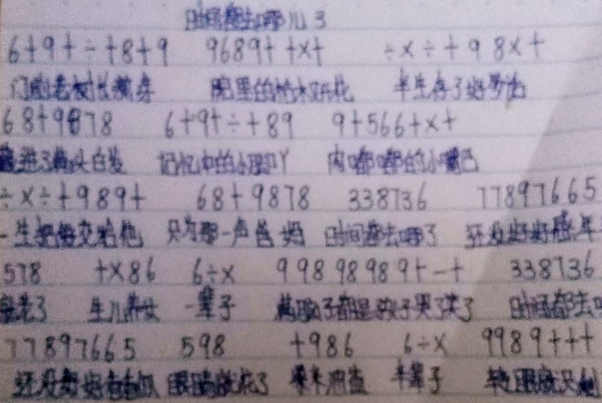 时间都去哪儿了
6+9+÷+8+9 9689++x+ ÷x÷+98x+
门前老树长新芽 院里的枯木又开花 半生存了好多话
68+9878 6+9+÷+89 9+566+x+
进了满头白发 记忆中的小脚丫 肉嘟嘟的小嘴巴
÷x÷+989+ 68+9878 338736 77897665
一生把爱交给他 只为那一声爸妈 时间都去哪了 还没好好感年
578 +x86 6÷x 99898989+-+ 338736
老了 生儿养女 一辈子 满脑子都是孩子哭了笑了 时间都去
77897665 598 +986 6÷x 9989+++
还没好好看看你 眼睛就花了 柴米油盐 半辈子 转眼就只剩